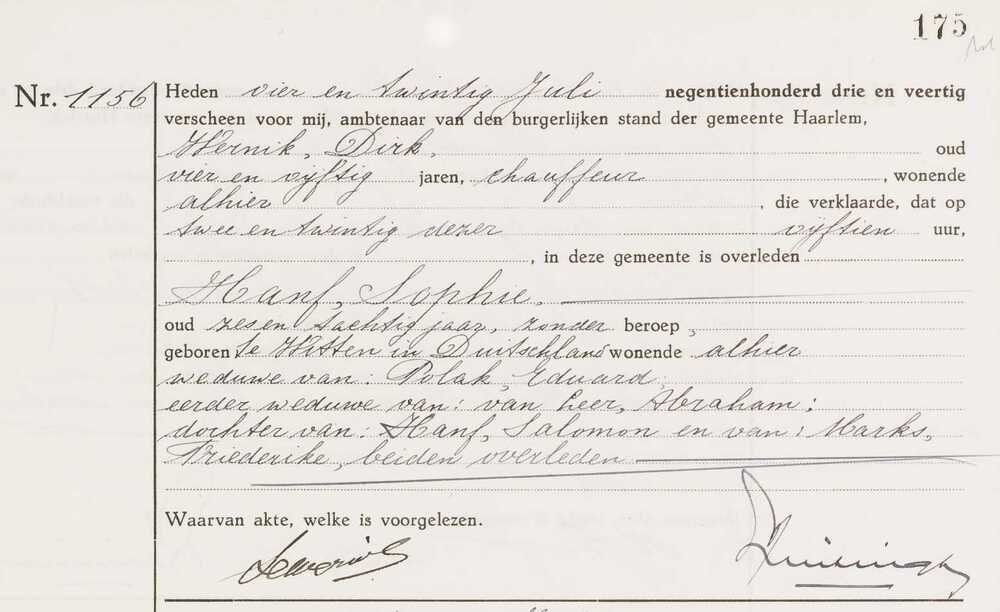 175
Nr. 1156 Heden vier en twintig Juli negentienhonderd drie en veertig
verscheen voor mij, ambtenaar van den burgerlijken stand der gemeente Haarlem,
Wernik, Dirk, oud
vier en vijftig jaren, chauffeur, wonende
alhier, die verklaarde, dat op
twee en twintig dezer vijftien uur,
, in deze gemeente is overleden
Hanf, Sophie.
oud zes en tachtig jaar, zonder beroep,
geboren te Witten in Duitschland wonende alhier
weduwe van: Polak, Eduard;
eerder weduwe van: van Leer, Abraham;
dochter van: Hanf, Salomon en van: Marks,
Friederike, beiden overleden
Waarvan akte, welke is voorgelezen.